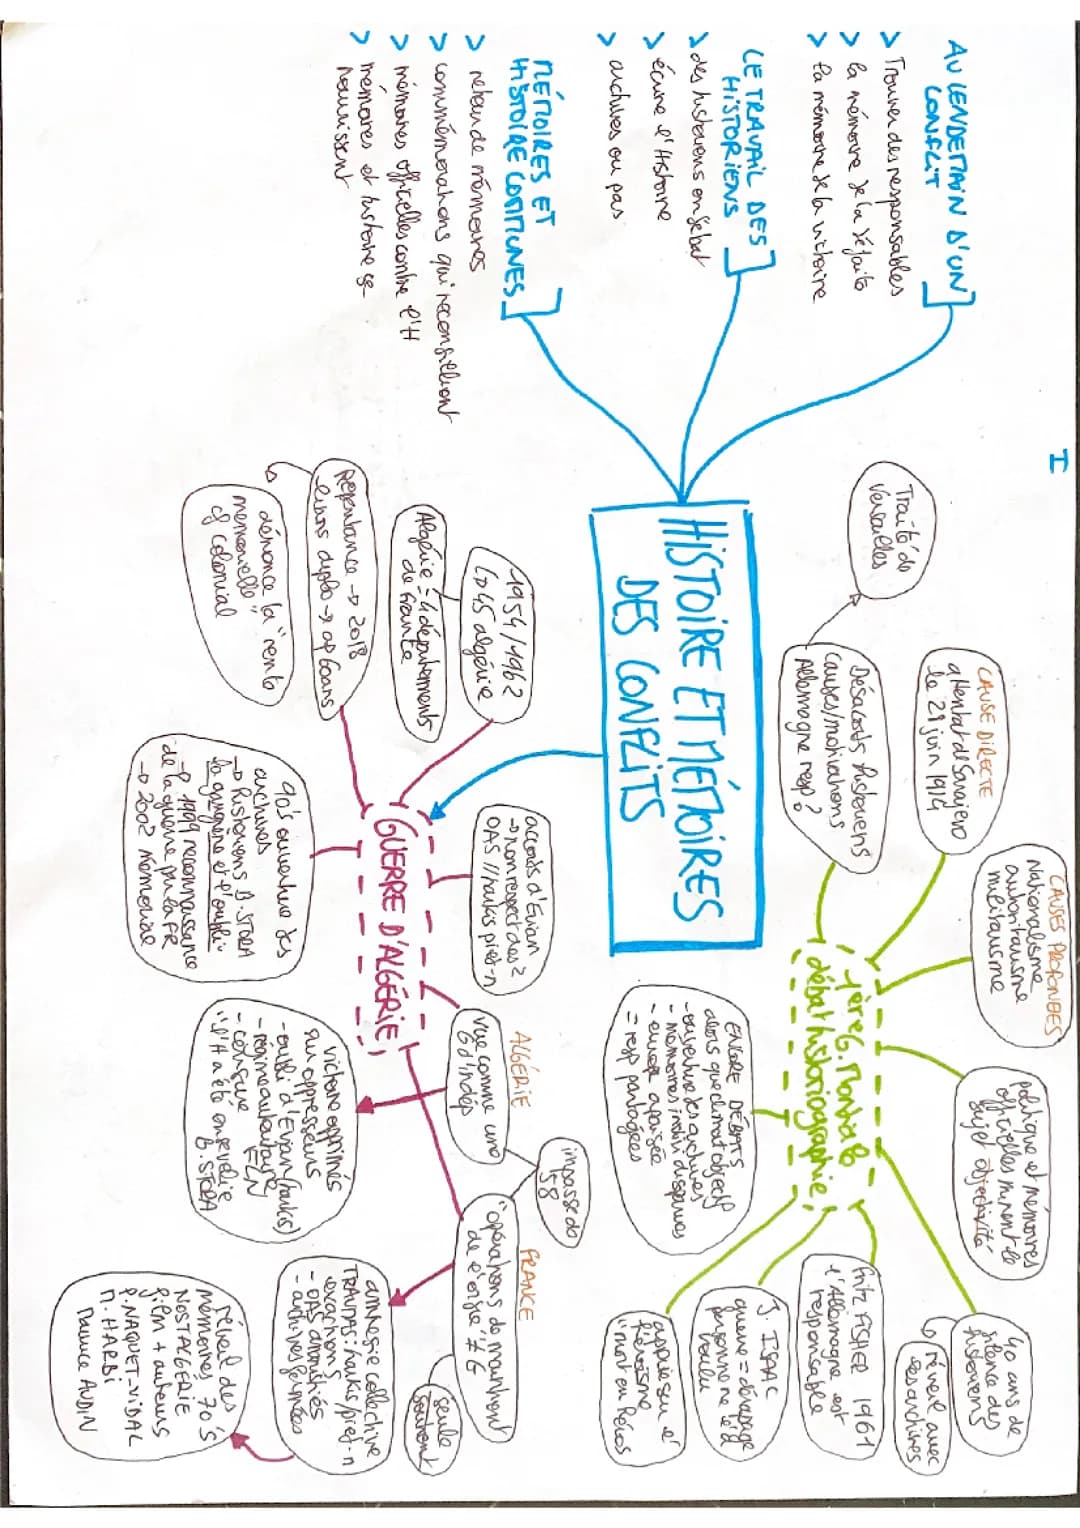 I
AU LENDEMAIN D'UN
CONFLIT
> Trouver des responsables
> la mémoire de la défaite
> la mémoire de la victoire
LE TRAVAIL DES
HISTORIENS
> des historiens en débat
> écrire l'Histoire
> archives ou pas
MÉMOIRES ET
HISTOIRE COMMUNES
> retour de mémoires
> commémorations qui réconcilient
> mémoires officielles contre l'H
> mémoires et histoire se
nourrissent
HISTOIRE ET MÉMOIRES
DES CONFLITS
Traité de
Versailles
CAUSE DIRECTE
attentat de Sarajevo
le 28 juin 1914
Désaccords historiens
causes/motivations
Allemagne resp?
CAUSES PROFONDES
Nationalisme
autoritarisme
militarisme
1ère G. Mondiale
débat historiographie
politique et mémoires
officielles minent le
sujet objectivité
40 ans de
silence des
historiens
réveil avec
les archives
Fritz FISHER 1961
l'Allemagne est
responsable
J. ISAAC
guerre = dérapage
personne ne l'a
voulu
appuie sur l'
héroïsme
"mort en héros
ENCORE DÉBATS
alors que climat objectif
- ouverture des archives
- mémoires indivi disparues
- europe apaisée
= resp partagées
1954/1962
↳ 45 algérie
Algérie = 4 départements
de France
Repentance → 2018
liens diplo → ap 60ans
dénonce la "rente
memorielle"
cf colonial
GUERRE D'ALGÉRIE
accords d'Evian
→ non respect des 2
OAS // harkis pied-n
90's ouverture des
archives
→ historiens B. STORA
la gangrène et l'oubli
→ 1999 reconnaissance
de la guerre par la FR
→ 2002 Mémorial
ALGÉRIE
vue comme une
G d'indép
impasse de
58
FRANCE
"opérations de maintient
de l'ordre" ≠ G
victoire opprimés
sur oppresseurs
- oubli d'Evian (harkis)
- régime autoritaire FLN
- censure
"l'H a été ensevelie"
B. STORA
amnésie collective
TRAUMAS: harkis/pied-n
exactions
- OAS amnistiés
- archives fermées
réveil des
mémoires 70's
NOSTALGERIE
film + auteurs
P. NAQUET-VIDAL
M. HARBI
Maurice AUDIN